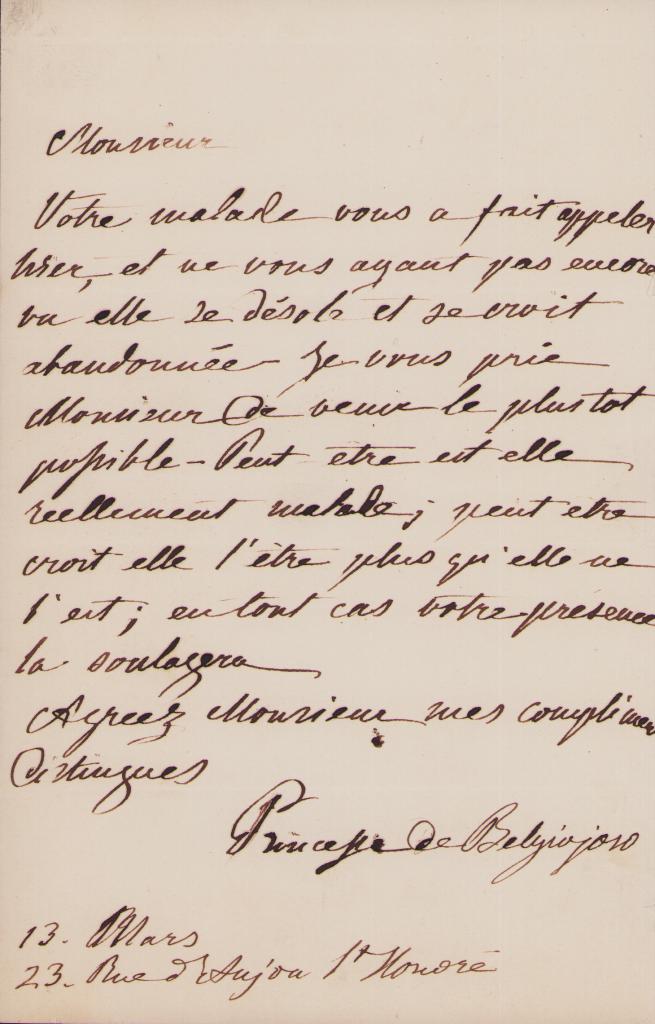 Monsieur
Votre malade vous a fait appeler
hier, et ne vous ayant pas encore
vu elle se désole et se croit
abandonnée - Je vous prie
Monsieur de venir le plustot
possible - Peut etre est elle
reellement malade; peut etre
croit elle l'être plus qu'elle ne
l'est; en tout cas votre présence
la soulagera
Agreez Monsieur mes complimens
distingues
Princesse de Belgiojoso
13. Mars
23. Rue d'Anjou St Honoré